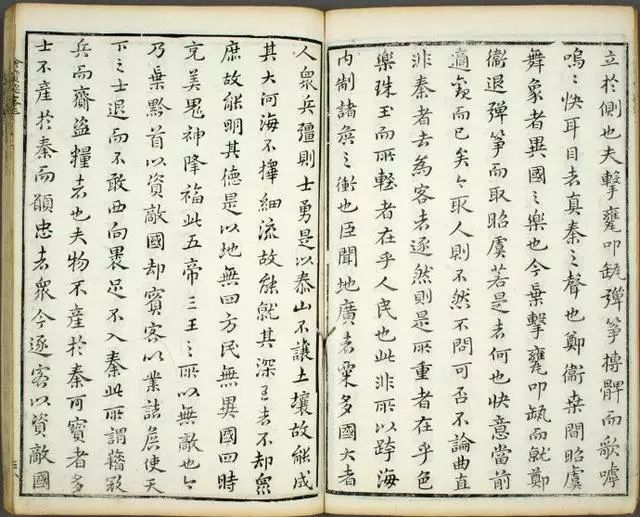 立於側也夫擊甕叩缻彈箏搏髀而歌嘑
嗚〻快耳目者真秦之聲也鄭衛桑間昭虞
舞象者異國之樂也今棄擊甕叩缻而就鄭
衛退彈箏而取昭虞若是者何也快意當前
適觀而已矣今取人則不然不問可否不論曲直
非秦者去為客者逐然則是所重者在乎色
樂珠玉而所輕者在乎人民也此非所以跨海
內制諸侯之術也臣聞地廣者粟多國大者
人眾兵彊則士勇是以泰山不讓土壤故能成
其大河海不擇細流故能就其深王者不却眾
庶故能明其德是以地無四方民無異國四時
充美鬼神降福此五帝三王之所以無敵也今
乃棄黔首以資敵國却賓客以業諸侯使天
下之士退而不敢西向裹足不入秦此所謂藉寇
兵而齎盜糧者也夫物不產於秦可寶者多
士不產於秦而願忠者眾今逐客以資敵國